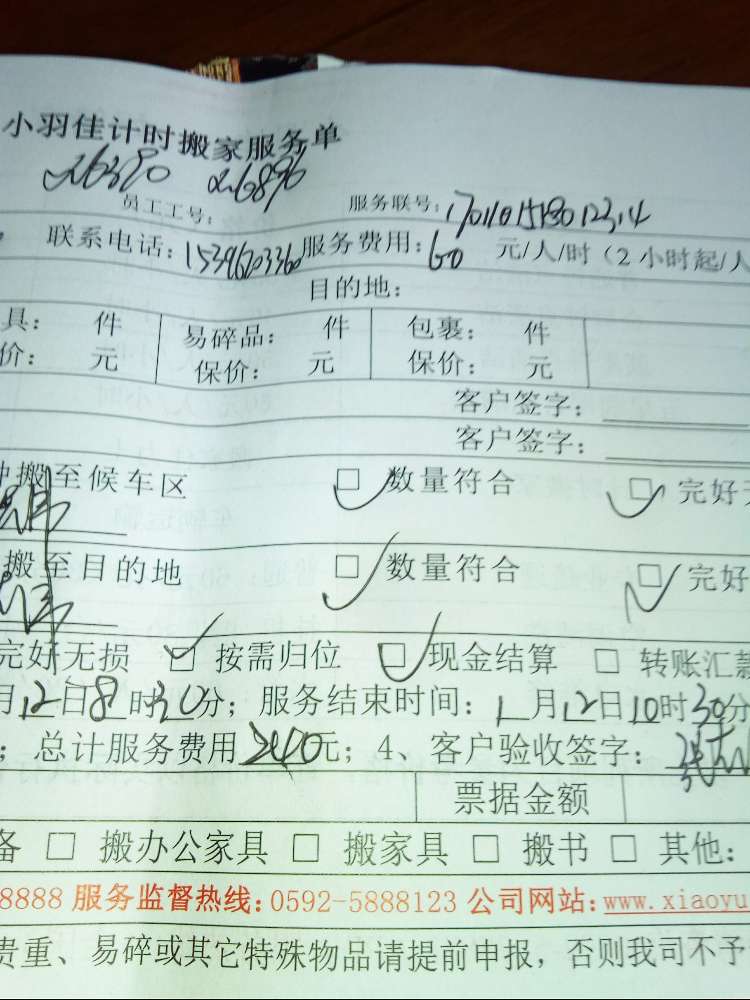 小羽佳计时搬家服务单
员工工号: 服务联号:
联系电话: 15396203360 服务费用: 60 元/人/时（2小时起/人
目的地:
具: 件 易碎品: 件 包裹: 件
价: 元 保价: 元 保价: 元
客户签字:
客户签字:
搬至候车区 □ 数量符合 □ 完好无
搬至目的地 □ 数量符合 □ 完好
完好无损 □ 按需归位 □ 现金结算 □ 转账汇款
月12日8时30分; 服务结束时间: 1月12日10时30分
; 总计服务费用240元; 4、客户验收签字:
票据金额
备 □ 搬办公家具 □ 搬家具 □ 搬书 □ 其他:
8888 服务监督热线: 0592-5888123 公司网站: www.xiaoyu
贵重、易碎或其它特殊物品请提前申报，否则我司不予